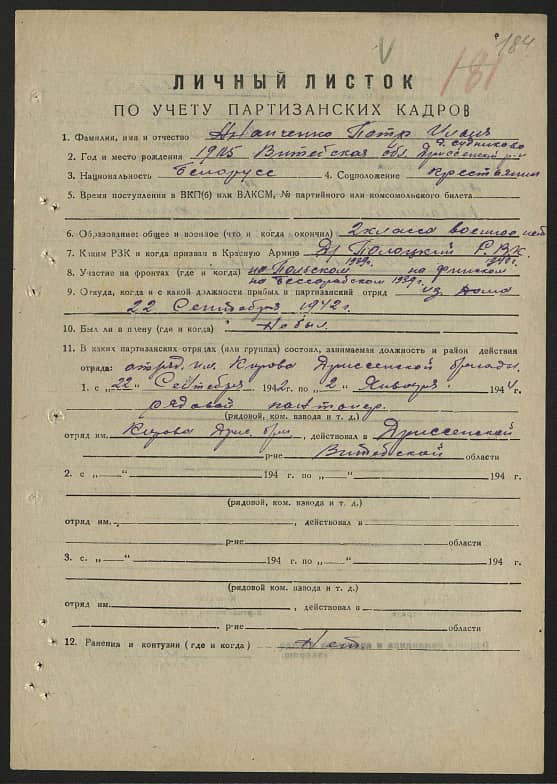 184
181
ЛИЧНЫЙ ЛИСТОК
ПО УЧЕТУ ПАРТИЗАНСКИХ КАДРОВ
1. Фамилия, имя и отчество Петр
д. Судниково
2. Год и место рождения 1915 Витебская обл Дриссенский р-н
3. Национальность Белорусс 4. Соцположение Крестьянин
5. Время поступления в ВКП(б) или ВЛКСМ, № партийного или комсомольского билета
6. Образование: общее и военное (что и когда окончил) 2 класса военное нет
7. Каким РЗК и когда призван в Красную Армию Полоцкий РВК
1939г. 1940г.
8. Участие на фронтах (где и когда) на Польском на финском
на Бессарабском 1939г.
9. Откуда, когда и с какой должности прибыл в партизанский отряд из дома
22 Сентября 1942г.
10. Был ли в плену (где и когда) Не был
11. В каких партизанских отрядах (или группах) состоял, занимаемая должность и район действия
отряда: отряд им. Кирова Дриссенской бригады.
1. с „22" Сентября 1942 г. по „2" Января 1944 г.
рядовой
(рядовой, ком. взвода и т. д.)
отряд им. Кирова Дрис. бриг, действовал в Дриссенской
р-не Витебской области
2. с „—" 194 г. по „—" 194 г.
(рядовой, ком. взвода и т. д.)
отряд им. , действовал в
р-не области
3. с „—" 194 г. по „—" 194 г.
(рядовой, ком. взвода и т. д.)
отряд им. , действовал в
р-не области
12. Ранения и контузии (где и когда) Нет